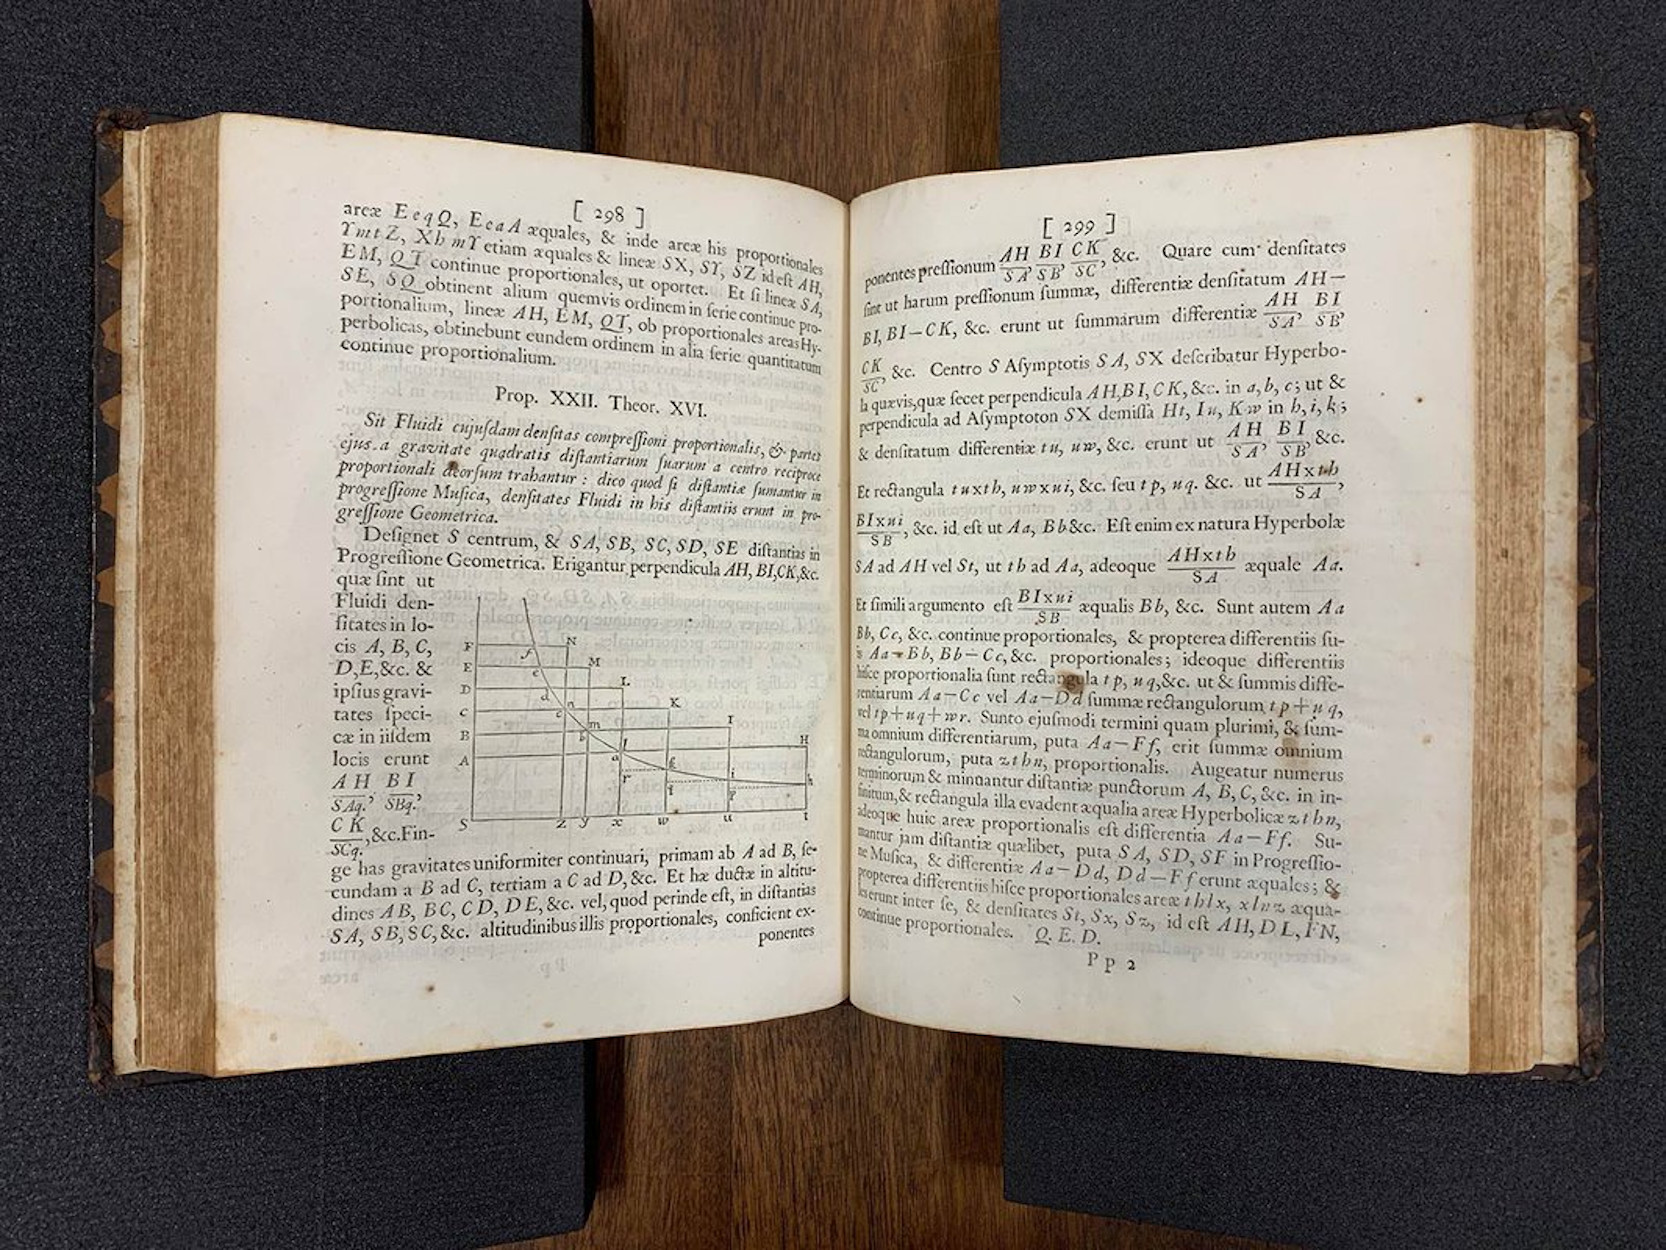 [ 298 ]
areæ EeqQ, EeaA æquales, & inde areæ his proportionales
YmtZ, XhmY etiam æquales & lineæ SX, SY, SZ id eſt AH,
EM, QT continue proportionales, ut oportet. Et ſi lineæ SA,
SE, SQ obtinent alium quemvis ordinem in ſerie continue pro-
portionalium, lineæ AH, EM, QT, ob proportionales areas Hy-
perbolicas, obtinebunt eundem ordinem in alia ſerie quantitatum
continue proportionalium.
Prop. XXII. Theor. XVI.
Sit Fluidi cujuſdam denſitas compreſſioni proportionalis, & partes
ejus a gravitate quadratis diſtantiarum ſuarum a centro reciproce
proportionali deorſum trahantur : dico quod ſi diſtantiæ ſumantur in
progreſſione Muſica, denſitates Fluidi in his diſtantiis erunt in pro-
greſſione Geometrica.
Deſignet S centrum, & SA, SB, SC, SD, SE diſtantias in
Progreſſione Geometrica. Erigantur perpendicula AH, BI, CK, &c.
quæ ſint ut
Fluidi den-
ſitates in lo-
cis A, B, C,
D, E, &c. &
ipſius gravi-
tates ſpeci-
cæ in iiſdem
locis erunt
AH BI
SAq.’ SBq.’
CK
SCq. , &c. Fin-
F E D C B A S
N M L K I H
f e d c b a
n m l k i h
r
z y x w u t
ge has gravitates uniformiter continuari, primam ab A ad B, ſe-
cundam a B ad C, tertiam a C ad D, &c. Et hæ ductæ in altitu-
dines AB, BC, CD, DE, &c. vel, quod perinde eſt, in diſtantias
SA, SB, SC, &c. altitudinibus illis proportionales, conficient ex-
ponentes
[ 299 ]
ponentes preſſionum AH/SA, BI/SB, CK/SC, &c. Quare cum denſitates
ſint ut harum preſſionum ſummæ, differentiæ denſitatum AH—
BI, BI—CK, &c. erunt ut ſummarum differentiæ AH/SA, BI/SB,
CK/SC, &c. Centro S Aſymptotis SA, SX deſcribatur Hyperbo-
la quævis, quæ ſecet perpendicula AH, BI, CK, &c. in a, b, c; ut &
perpendicula ad Aſymptoton SX demiſſa Ht, Iu, Kw in h, i, k;
& denſitatum differentiæ tu, uw, &c. erunt ut AH/SA, BI/SB, &c.
Et rectangula tu x th, uw x ui, &c. ſeu tp, uq. &c. ut AH x th/SA,
BI x ui/SB, &c. id eſt ut Aa, Bb &c. Eſt enim ex natura Hyperbolæ
SA ad AH vel St, ut th ad Aa, adeoque AH x th/SA æquale Aa.
Et ſimili argumento eſt BI x ui/SB æqualis Bb, &c. Sunt autem Aa
Bb, Cc, &c. continue proportionales, & propterea differentiis ſu-
is Aa—Bb, Bb—Cc, &c. proportionales; ideoque differentiis
hiſce proportionalia ſunt rectangula tp, uq, &c. ut & ſummis diffe-
rentiarum Aa—Cc vel Aa—Dd ſummæ rectangulorum tp+uq,
vel tp+uq+wr. Sunto ejuſmodi termini quam plurimi, & ſum-
ma omnium differentiarum, puta Aa—Ff, erit ſummæ omnium
rectangulorum, puta zthn, proportionalis. Augeatur numerus
terminorum & minuantur diſtantiæ punctorum A, B, C, &c. in in-
finitum, & rectangula illa evadent æqualia areæ Hyperbolicæ zthn,
adeoque huic areæ proportionalis eſt differentia Aa—Ff. Su-
mantur jam diſtantiæ quælibet, puta SA, SD, SF in Progreſſio-
ne Muſica, & differentiæ Aa—Dd, Dd—Ff erunt æquales; &
propterea differentiis hiſce proportionales areæ thlx, xlnz æqua-
les erunt inter ſe, & denſitates St, Sx, Sz, id eſt AH, DL, FN,
continue proportionales. Q. E. D.
Pp 2